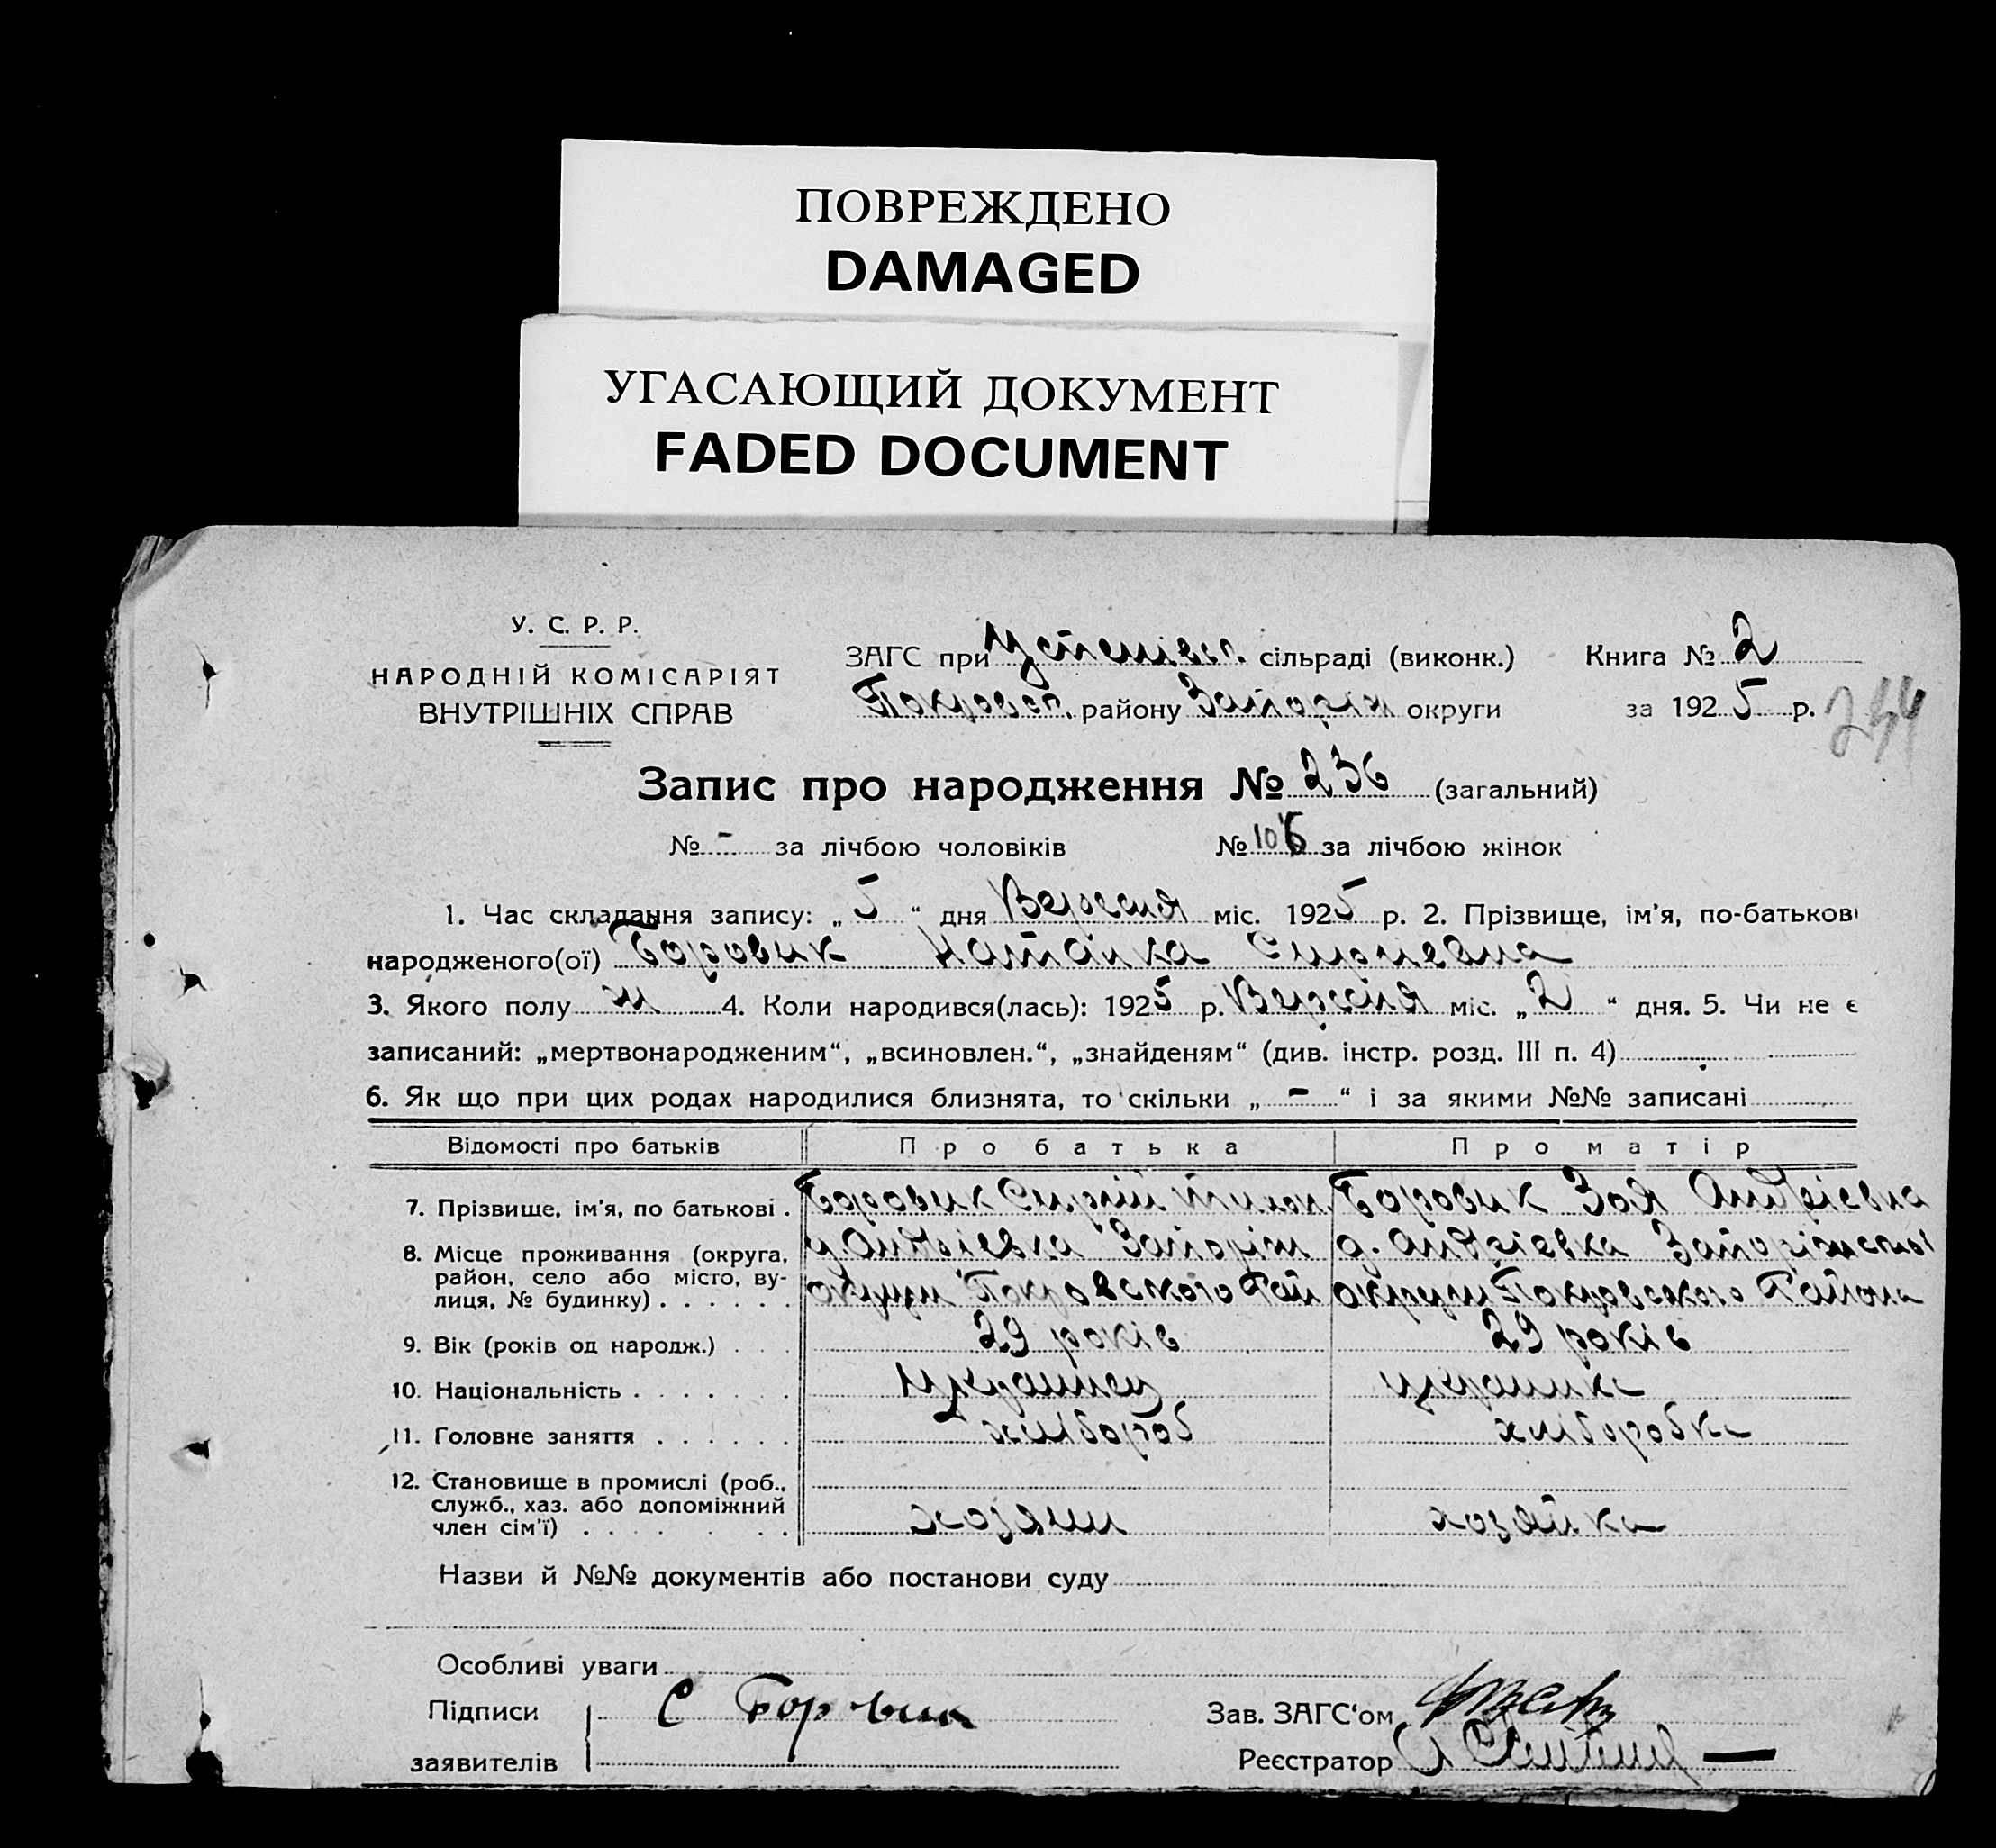 ПОВРЕЖДЕНО
DAMAGED
УГАСАЮЩИЙ ДОКУМЕНТ
FADED DOCUMENT
У. С. Р. Р.
НАРОДНІЙ КОМІСАРІЯТ
ВНУТРІШНІХ СПРАВ
ЗАГС при сільраді (виконк.) Книга № 2
Покровск. району Запоріж округи за 1925 р.
244
Запис про народження № 236 (загальний)
№ - за лічбою чоловіків № 106 за лічбою жінок
1. Час складання запису: „5“ дня Вересня міс. 1925 р. 2. Прізвище, ім'я, по-батькові
народженого(ої) Боровик Наталка Сиргіевна
3. Якого полу ж 4. Коли народився(лась): 1925 р. Вересня міс. „2“ дня. 5. Чи не є
записаний: „мертвонародженим“, „всиновлен.“, „знайденям“ (див. інстр. розд. III п. 4)
6. Як що при цих родах народилися близнята, то скільки „-“ і за якими №№ записані
Відомості про батьків Про батька Про матір
7. Прізвище, ім'я, по батькові . Боровик Сиргій Тихон Боровик Зоя Андріевна
8. Місце проживання (округа, район, село або місто, вулиця, № будинку) . . . . . . д. Андріевка Запоріж округи Покровского Рай д. Андріевка Запоріжской округи Покровского Района
9. Вік (років од народж.) . . . 29 років 29 років
10. Національність . . . . . . . Українец українка
11. Головне заняття . . . . . . хлібороб хліборобка
12. Становище в промислі (роб., служб., хаз. або допоміжний член сім'ї) . . . . . . . хозяин хозяйка
Назви й №№ документів або постанови суду
Особливі уваги
Підписи С Боровик Зав. ЗАГС'ом
заявителів Реєстратор